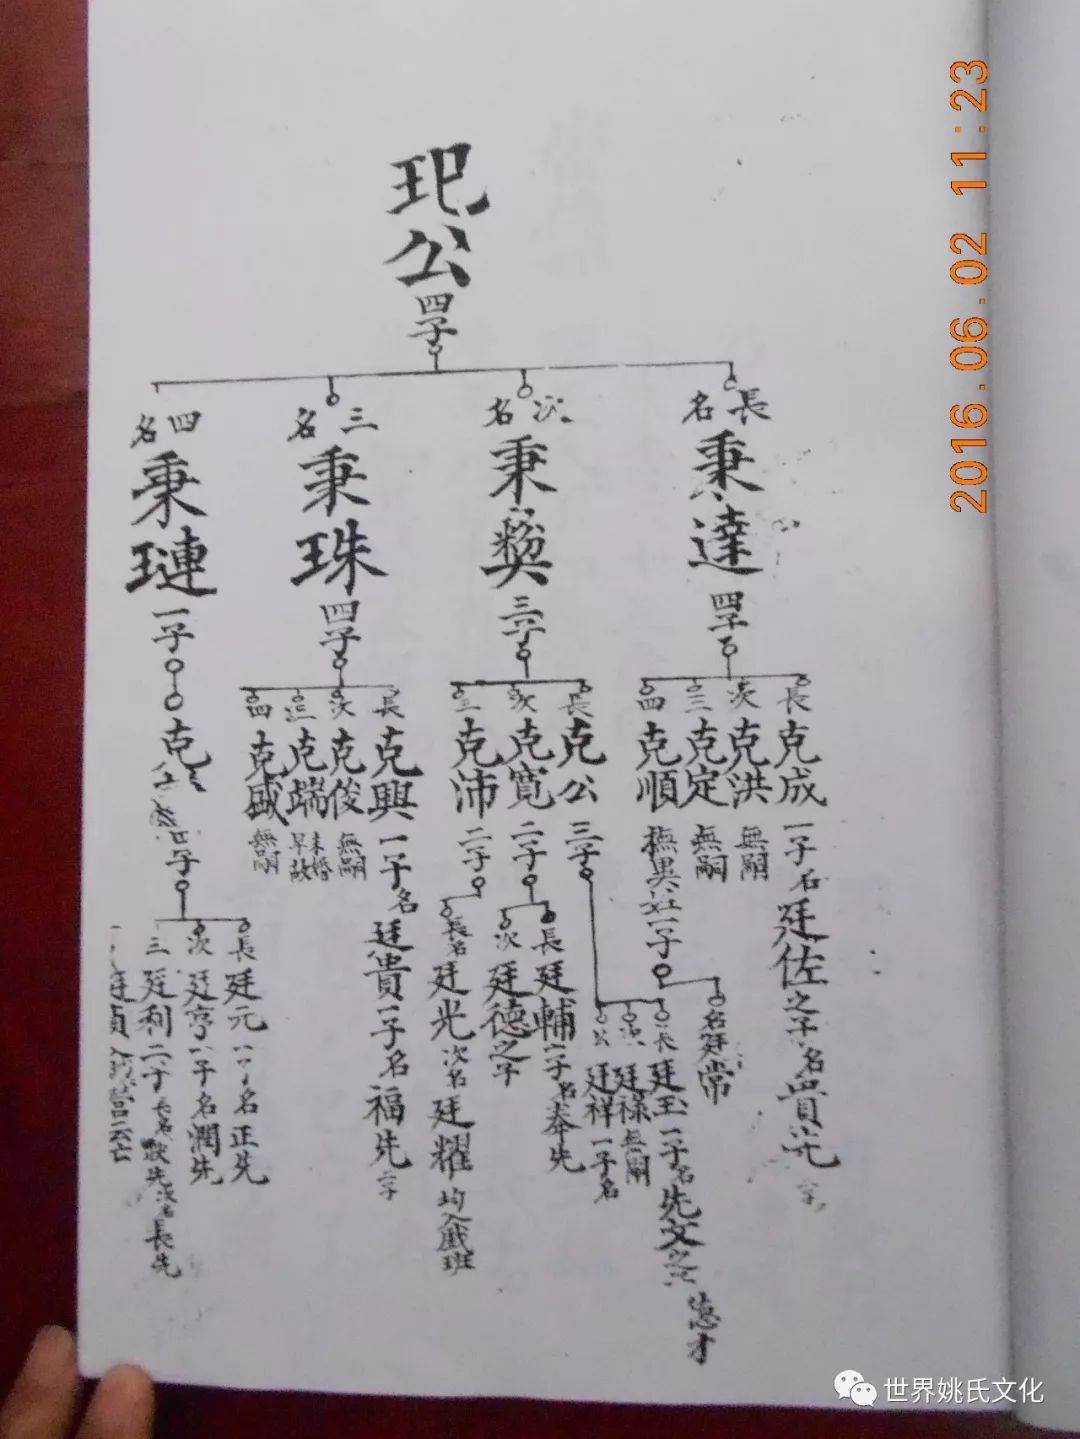 玘公
四子
長名
秉達
四子
次名
秉
三子
三名
秉珠
四子
四名
秉璉
一子
長克成
一子名廷佐之子名貴先
次克洪
無嗣
三克定
無嗣
四克順
一子
名廷常
長克公
三子
長廷玉一子名先文之
德才
次廷祿無嗣
廷祥一子名
次克寬
二子
長廷輔一子名奉先
次廷德之子
三克沛
二子
長名廷光次名廷耀均入戲班
長克興
一子名
廷貴一子名福先
次克俊
無嗣
三克端
未婚早故
四克盛
無嗣
克
四子
長廷元一子名正先
次廷亨一子名潤先
三廷利二子長名
先次名長先
廷貞
營亡
2016.06.02 11:23
世界姚氏文化